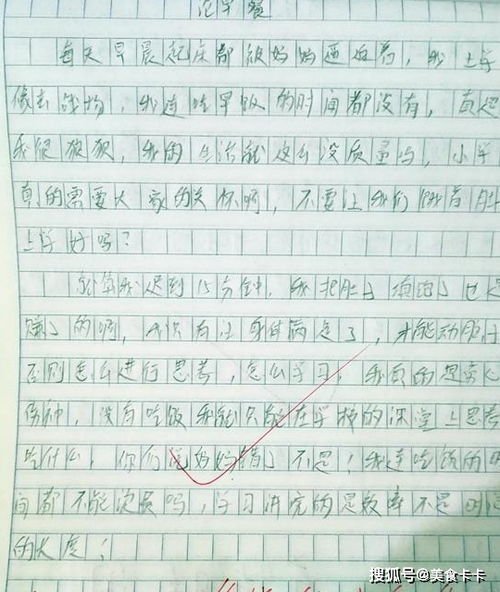 早餐
每天早晨起床都被妈妈逼迫着，我上学
像去战场，我连吃早饭的时间都没有，真是
我很狼狈，我的生活就这么没质量吗，小学
真的需要大家的关怀啊，不要让我们饿着肚
上学好吗？
就算我迟到15分钟，我把肚子填饱了也是
赚了的啊，我只有让身体满足了，才能动脑
否则怎么进行思考，怎么学习，我真的是
伤神，没有吃饭我就只能在学校的课堂上思考
吃什么，你们说妈妈错了不是！我连吃饭的时
间都不能浪费吗，学习讲究的是效率不是时间
的长度！
搜狐号@美食卡卡